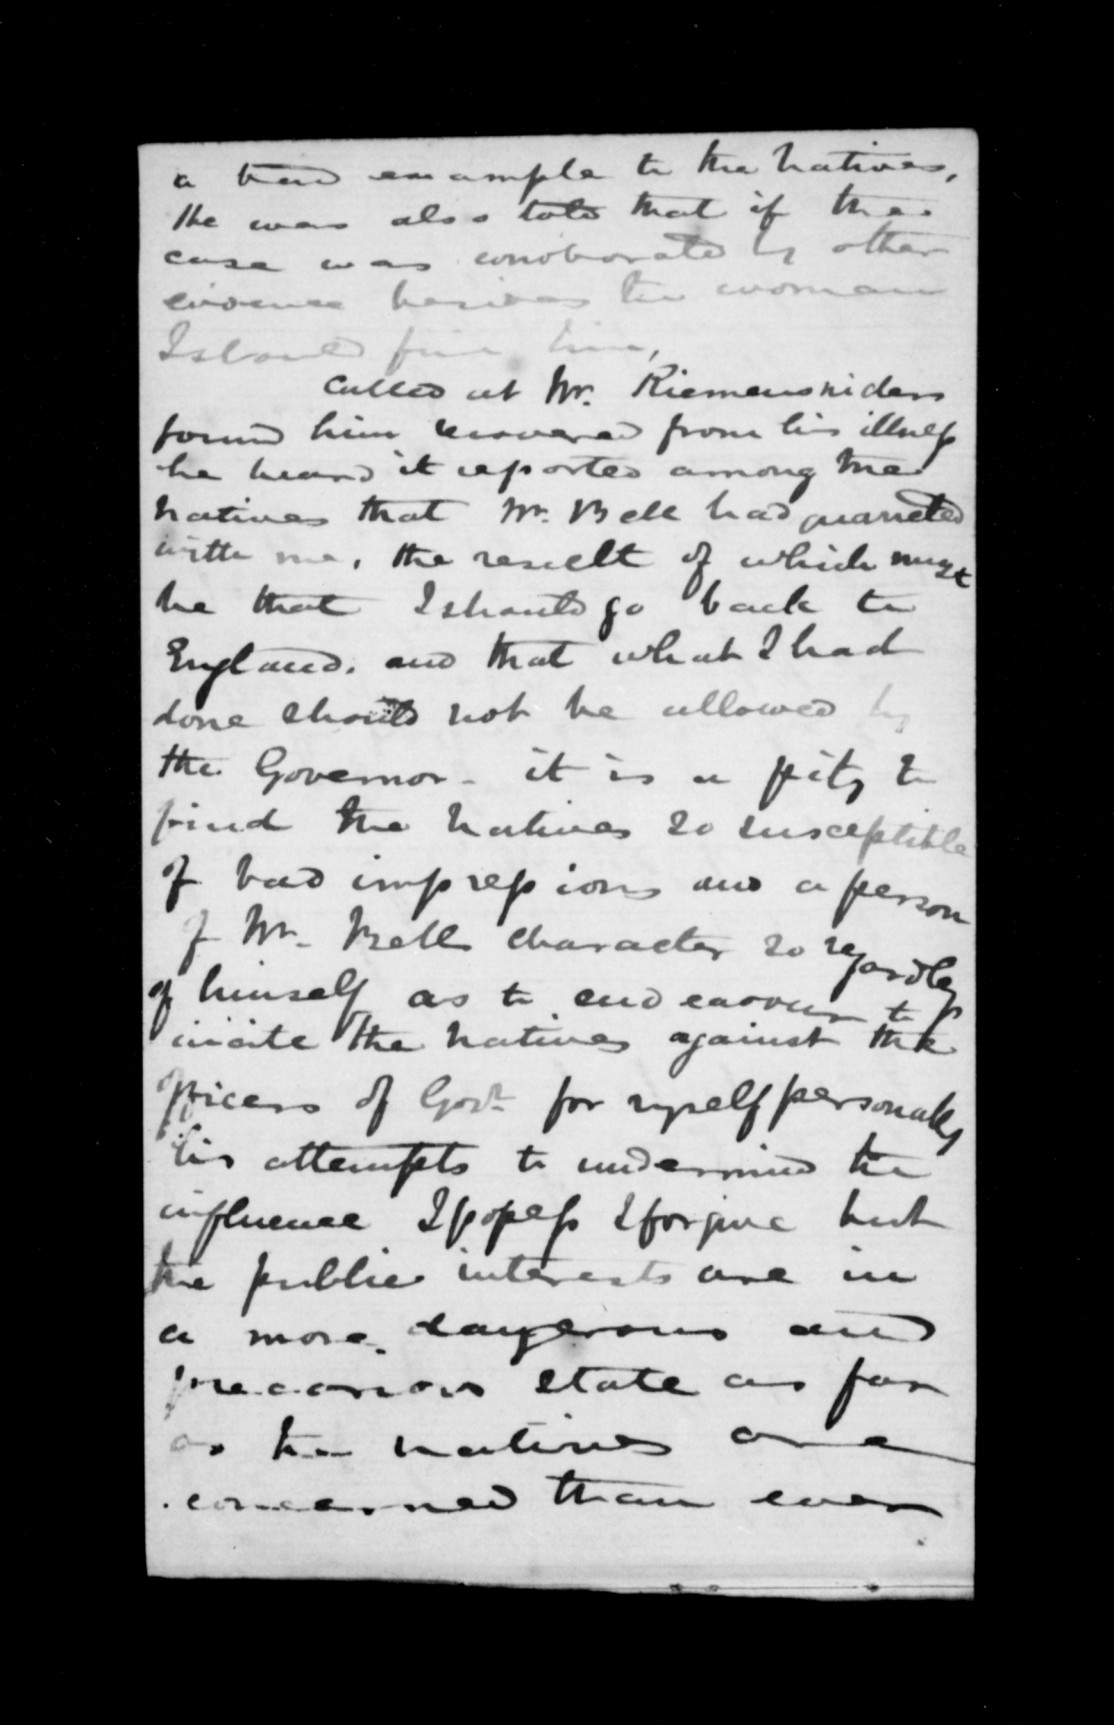 a bad example to the Natives,
He was also told that if the
case was corroborated by other
evidence besides the woman
I should fine him,
Called at Mr. Riemensniders
found him recovered from his illness
he heard it reported among the
Natives that Mr. Bell had quarreled
with me, the result of which must
be that I should go back to
England, and that what I had
done should not be allowed by
the Governor - it is a pity to
find the Natives so susceptible
of bad impressions and a person
of Mr. Bells character so regardless
of himself as to endeavour to
incite the Natives against the
officers of Govt. for myself personally
his attempts to undermine the
influence I possess I forgive but
the public interests are in
a more dangerous and
precarious state as far
as the natives are
concerned than ever